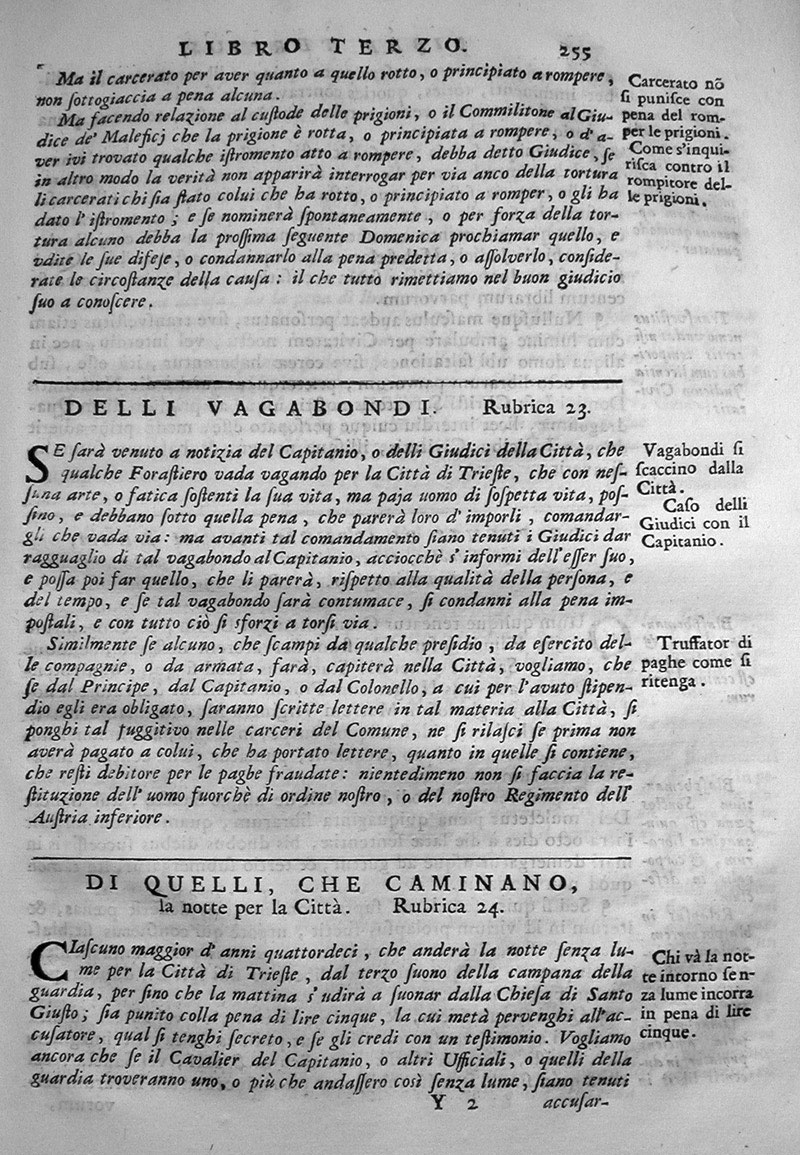 LIBRO TERZO. 255
Ma il carcerato per aver quanto a quello rotto, o principiato a rompere,
non ſottogiaccia a pena alcuna.
Ma facendo relazione al cuſtode delle prigioni, o il Commilitone al Giu-
dice de' Maleficj che la prigione è rotta, o principiata a rompere, o d'a-
ver ivi trovato qualche iſtromento atto a rompere, debba detto Giudice, ſe
in altro modo la verità non apparirà interrogar per via anco della tortura
li carcerati chi ſia ſtato colui che ha rotto, o principiato a romper, o gli ha
dato l'iſtromento; e ſe nominerà ſpontaneamente, o per forza della tor-
tura alcuno debba la proſſima ſeguente Domenica prochiamar quello, e
vdite le ſue difeſe, o condannarlo alla pena predetta, o aſſolverlo, conſide-
rate le circoſtanze della cauſa: il che tutto rimettiamo nel buon giudicio
ſuo a conoſcere.
Carcerato nõ
ſi puniſce con
pena del rom-
per le prigioni.
Come s'inqui-
riſca contro il
rompitore del-
le prigioni.
DELLI VAGABONDI. Rubrica 23.
SE ſarà venuto a notizia del Capitanio, o delli Giudici della Città, che
qualche Foraſtiero vada vagando per la Città di Trieſte, che con neſ-
ſuna arte, o fatica ſoſtenti la ſua vita, ma paja uomo di ſoſpetta vita, poſ-
ſino, e debbano ſotto quella pena, che parerà loro d'imporli, comandar-
gli che vada via: ma avanti tal comandamento ſiano tenuti i Giudici dar
ragguaglio di tal vagabondo al Capitanio, acciocchè s'informi dell'eſſer ſuo,
e poſſa poi far quello, che li parerà, riſpetto alla qualità della perſona, e
del tempo, e ſe tal vagabondo ſarà contumace, ſi condanni alla pena im-
poſtali, e con tutto ciò ſi sforzi a torſi via.
Similmente ſe alcuno, che ſcampi da qualche preſidio, da eſercito del-
le compagnie, o da armata, ſarà, capiterà nella Città, vogliamo, che
ſe dal Principe, dal Capitanio, o dal Colonello, a cui per l'avuto ſtipen-
dio egli era obligato, ſaranno ſcritte lettere in tal materia alla Città, ſi
ponghi tal fuggitivo nelle carceri del Comune, ne ſi rilaſci ſe prima non
averà pagato a colui, che ha portato lettere, quanto in quelle ſi contiene,
che reſti debitore per le paghe fraudate: nientedimeno non ſi faccia la re-
ſtituzione dell'uomo fuorchè di ordine noſtro, o del noſtro Regimento dell'
Auſtria inferiore.
Vagabondi ſi
ſcaccino dalla
Città.
Caſo delli
Giudici con il
Capitanio.
Truffator di
paghe come ſi
ritenga.
DI QUELLI, CHE CAMINANO,
la notte per la Città. Rubrica 24.
CIaſcuno maggior d'anni quattordeci, che anderà la notte ſenza lu-
me per la Città di Trieſte, dal terzo ſuono della campana della
guardia, per ſino che la mattina s'udirà a ſuonar dalla Chieſa di Santo
Giuſto; ſia punito colla pena di lire cinque, la cui metà pervenghi all'ac-
cuſatore, qual ſi tenghi ſecreto, e ſe gli credi con un teſtimonio. Vogliamo
ancora che ſe il Cavalier del Capitanio, o altri Ufficiali, o quelli della
guardia troveranno uno, o più che andaſſero così ſenza lume, ſiano tenuti
Chi và la not-
te intorno ſen-
za lume incorra
in pena di lire
cinque.
Y 2 accuſar-